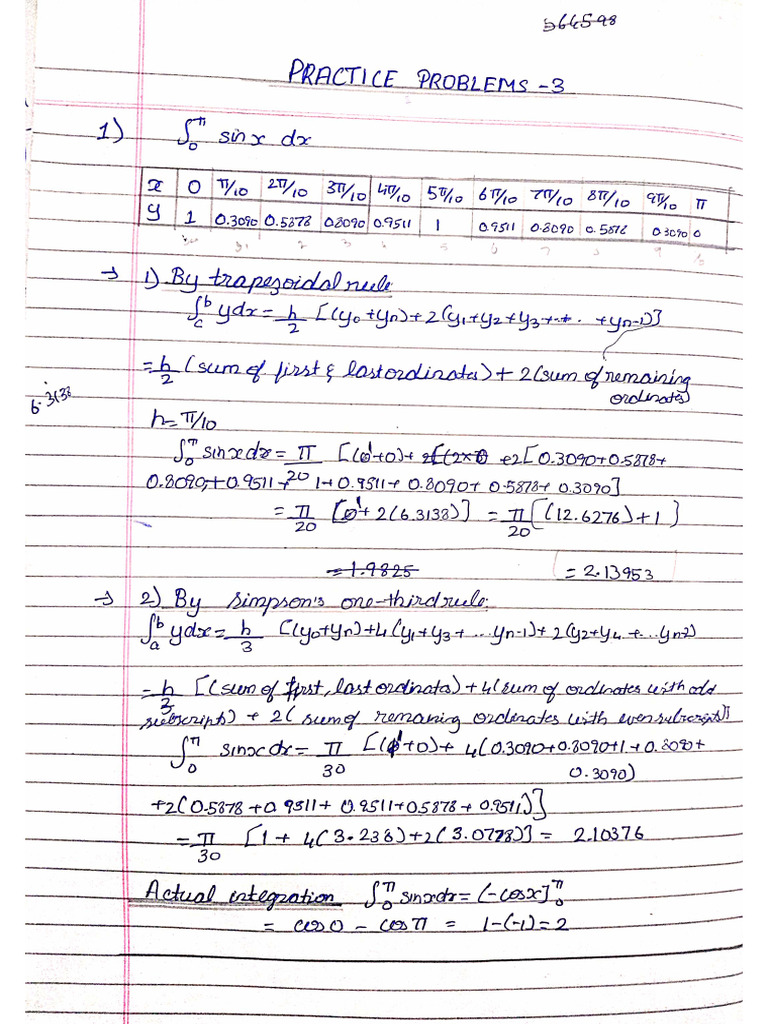 364598
PRACTICE PROBLEMS -3
1) ∫₀^π sin x dx
x 0 π/10 2π/10 3π/10 4π/10 5π/10 6π/10 7π/10 8π/10 9π/10 π
y 1 0.3090 0.5878 0.8090 0.9511 1 0.9511 0.8090 0.5878 0.3090 0
→ 1) By trapezoidal rule
∫c^b ydx = h/2 [(y0+yn)+2(y1+y2+y3+..+. . +yn-1)]
= h/2 (sum of first & last ordinates) + 2(sum of remaining
ordinates)
6.3138
h=π/10
∫₀^π sinxdx = π/20 [(1+0)+ +2[0.3090+0.5878+
0.8090+0.9511+1+0.9511+0.8090+0.5878+0.3090]
= π/20 [1+2(6.3138)] = π/20 [(12.6276)+1]
=1.9825 =2.13953
→ 2) By simpson's one-third rule:
∫a^b ydx = h/3 [(y0+yn)+4(y1+y3+...yn-1)+2(y2+y4+...yn-2)
= h/3 [(sum of first, last ordinata)+4(sum of ordinates with odd
subscripts) + 2(sum of remaning ordinates with even subscripts)]
∫₀^π sinxdx = π/30 [(1+0)+ 4(0.3090+0.8090+1+0.8090+
0.3090)
+2(0.5878+0.9511+0.9511+0.5878+0.9511)]
= π/30 [1+4(3.236)+2(3.0778)] = 2.10376
Actual integration ∫₀^π sinxdx = (-cosx]₀^π
= cos0 - cosπ = 1-(-1)=2